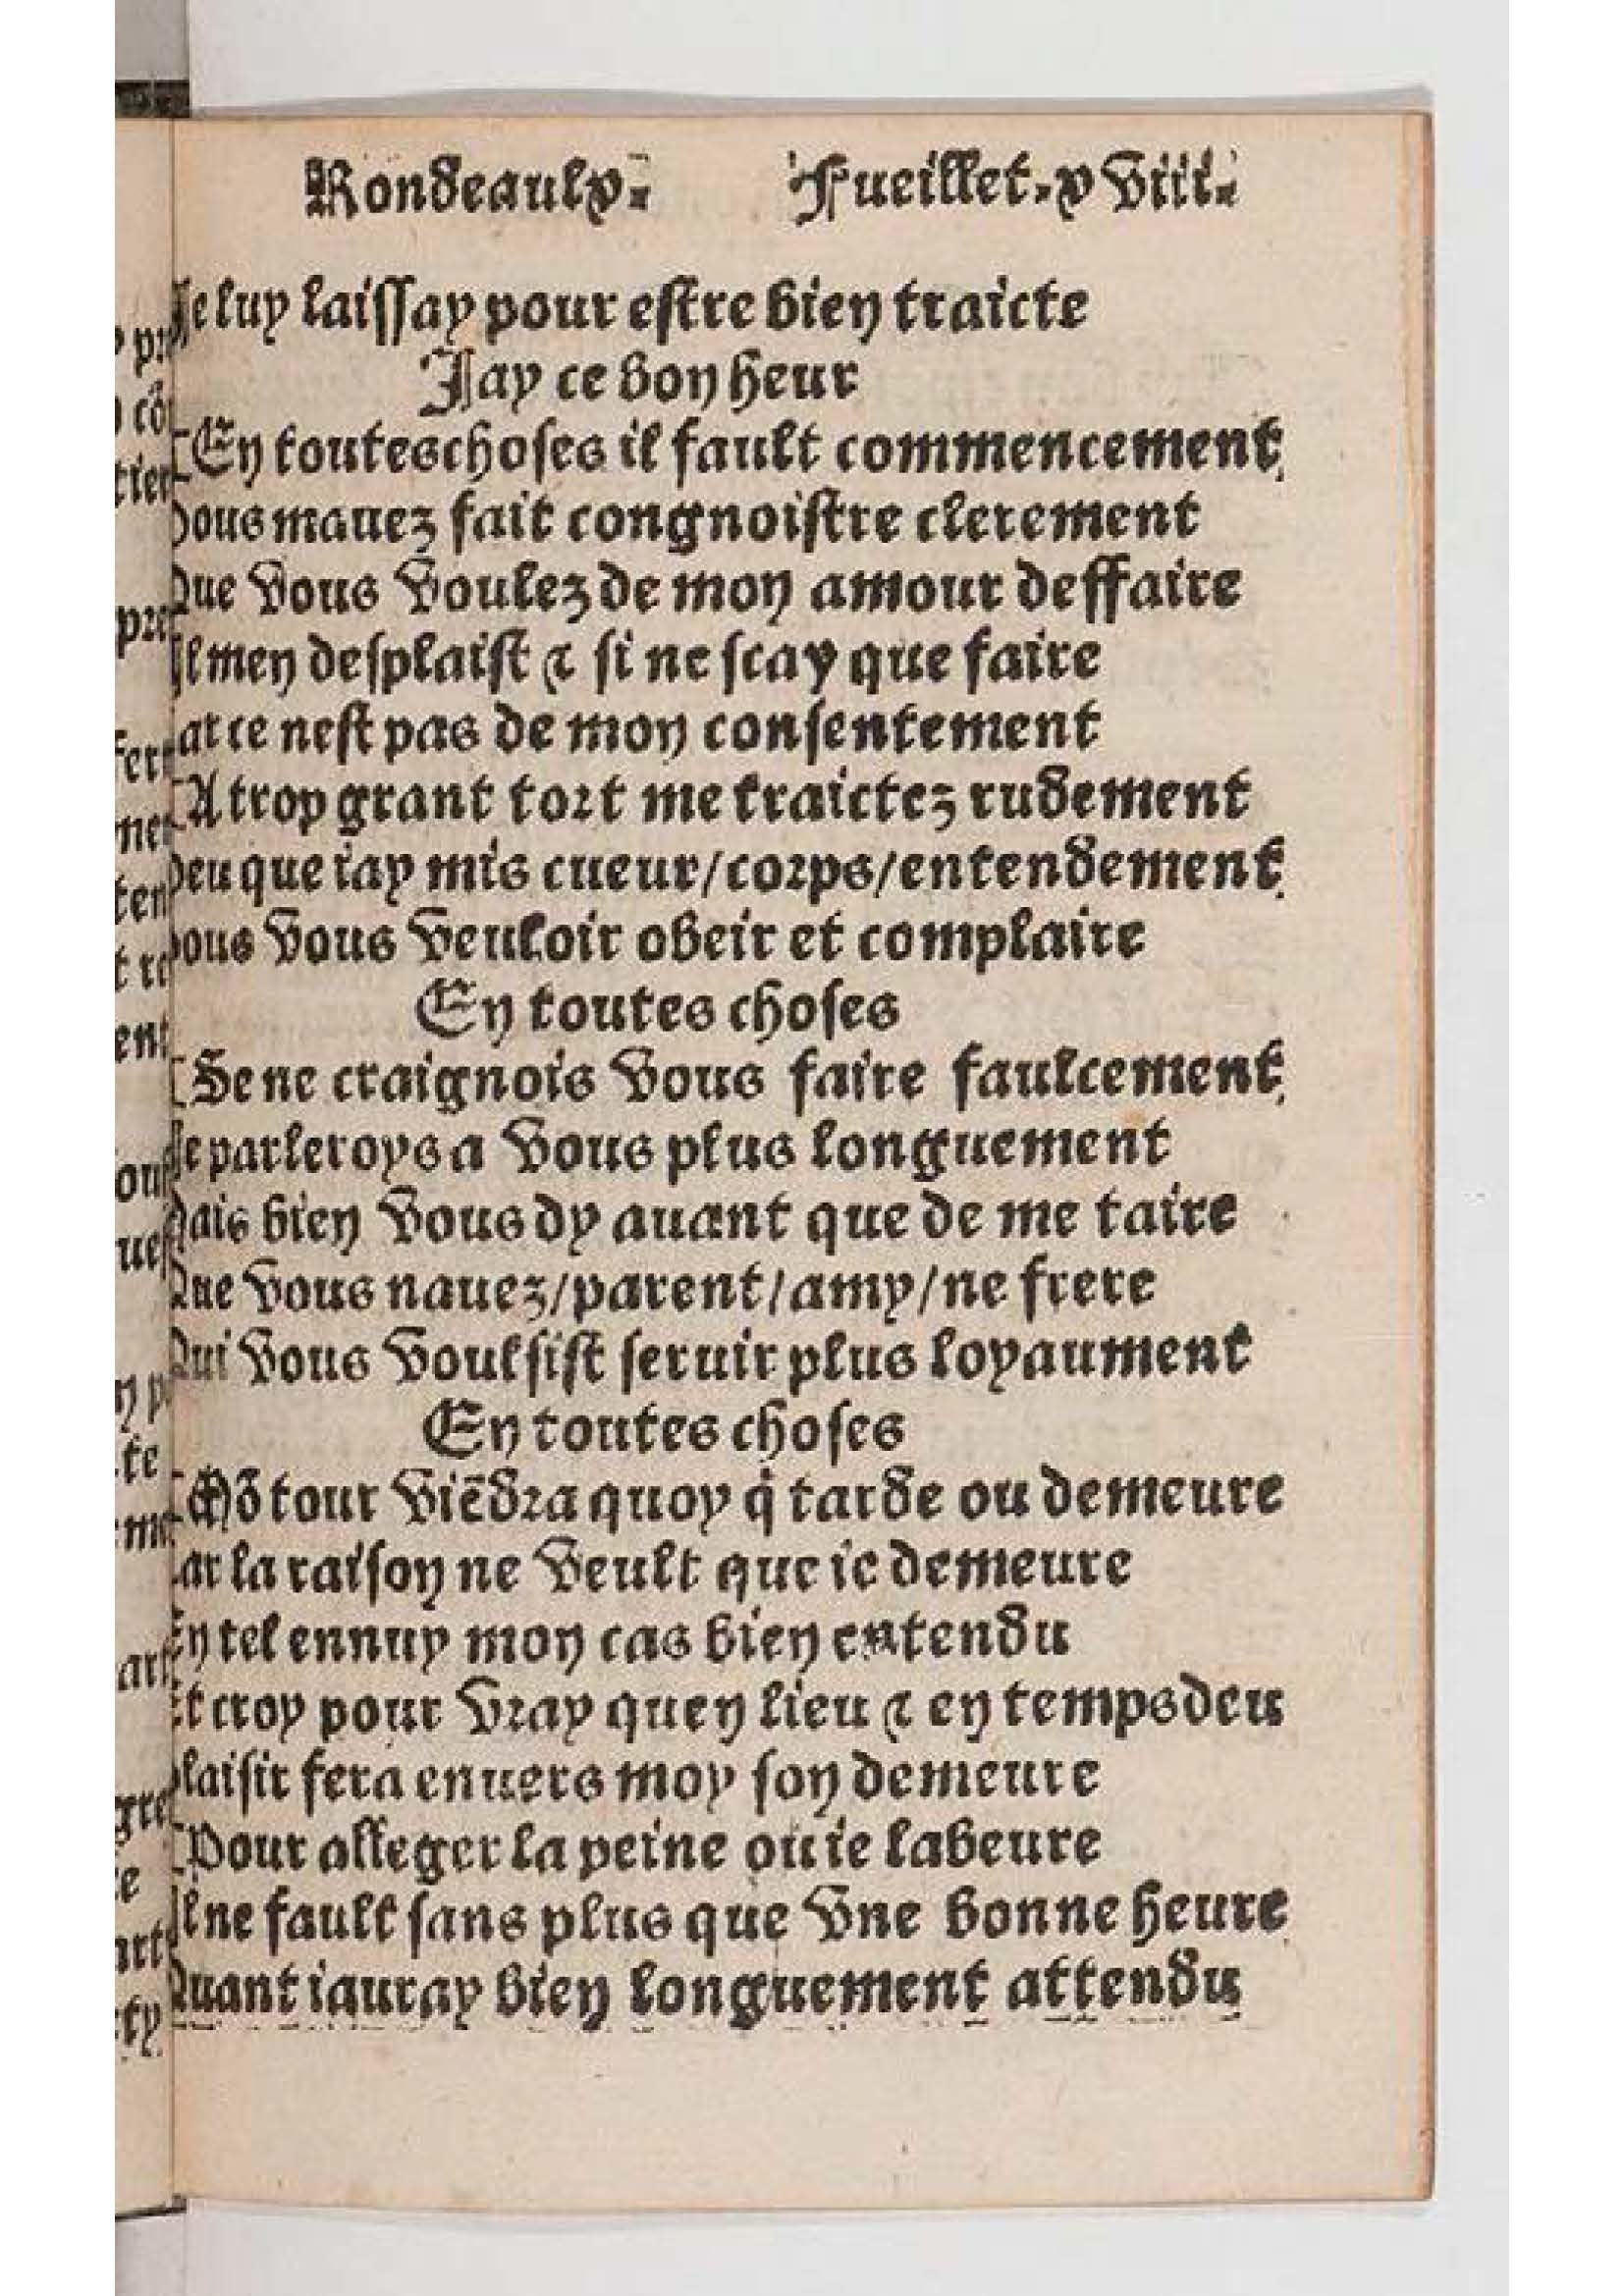 Rondeaulx. Fueillet. xviii.
Je luy laissay pour estre bien traicte
Jay ce bon heur
En touteschoses il fault commencement
vous mauez fait congnoistre clerement
Que vous voulez de mon amour deffaire
Il men desplaist & si ne scay que faire
ar ce nest pas de mon consentement
A trop grant tort me traictez rudement
veu que iay mis cueur/corps/entendement
vous vous veuloir obeir et complaire
En toutes choses
Se ne craignois vous faire faulcement
Je parleroys a vous plus longuement
Mais bien vous dy auant que de me taire
Que vous nauez/parent/amy/ne frere
Qui vous voulsist seruir plus loyaument
En toutes choses
Mō tour viēdra quoy q̇ tarde ou demeure
ar la raison ne veult que ie demeure
En tel ennuy mon cas bien entendu
Et croy pour vray quen lieu & en temps deu
plaisir fera enuers moy son demeure
Pour alleger la peine ou ie labeure
Il ne fault sans plus que vne bonne heure
Quant iauray bien longuement attendu